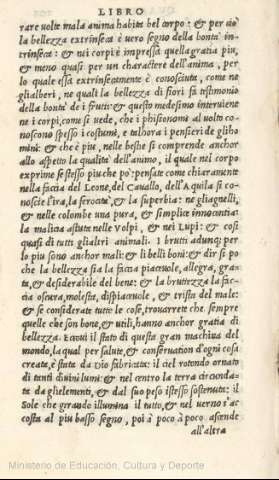 LIBRO
rare uolte mala anima habita bel corpo: & per ciò
la bellezza extrinseca è uero segno della bontà in-
trinseca: & nei corpi è impressa quella gratia piu,
& meno quasi per un charactere dell'anima, per
lo quale essa extrinsecamente è conosciuta, come ne
gli alberi, ne quali la bellezza di fiori fà testimonio
della bontà de i frutti: & questo medesimo interuiene
ne i corpi, come si uede, che i phisionomi al uolto co-
noscono spesso i costumi, e talhora i pensieri de gli ho
mini: & che è piu, nelle bestie si comprende anchor
allo aspetto la qualità dell'animo, il quale nel corpo
exprime se stesso piu che pò: pensate come chiaramente
nella faccia del Leone, del Cauallo, dell'Aquila si co-
nosce l'ira, la ferocità, & la superbia: ne gli agnelli,
& nelle colombe una pura, & simplice innocentia:
la malitia astuta nelle Volpi, & nei Lupi: & cosi
quasi di tutti gli altri animali. I brutti adunq; per
lo piu sono anchor mali: & li belli boni: & dir si po
che la bellezza sia la faccia piaceuole, allegra, gra-
ta, & desiderabile del bene: & la bruttezza la fac-
cia oscura, molesta, dispiaceuole, & trista del male:
& se considerate tutte le cose, trouarete che sempre
quelle che son bone, & utili, hanno anchor gratia di
bellezza. Eccoui il stato di questa gran machina del
mondo, la qual per salute, & conseruation d'ogni cosa
creata, è stata da Dio fabricata: il ciel rotondo ornato
di tanti diuini lumi: & nel centro la terra circonda-
ta da gli elementi, & dal suo peso istesso sostenuta: il
Sole che girando illumina il tutto, & nel uerno s'ac
costa al piu basso segno, poi à poco à poco ascende
all'altra
Ministerio de Educación, Cultura y Deporte